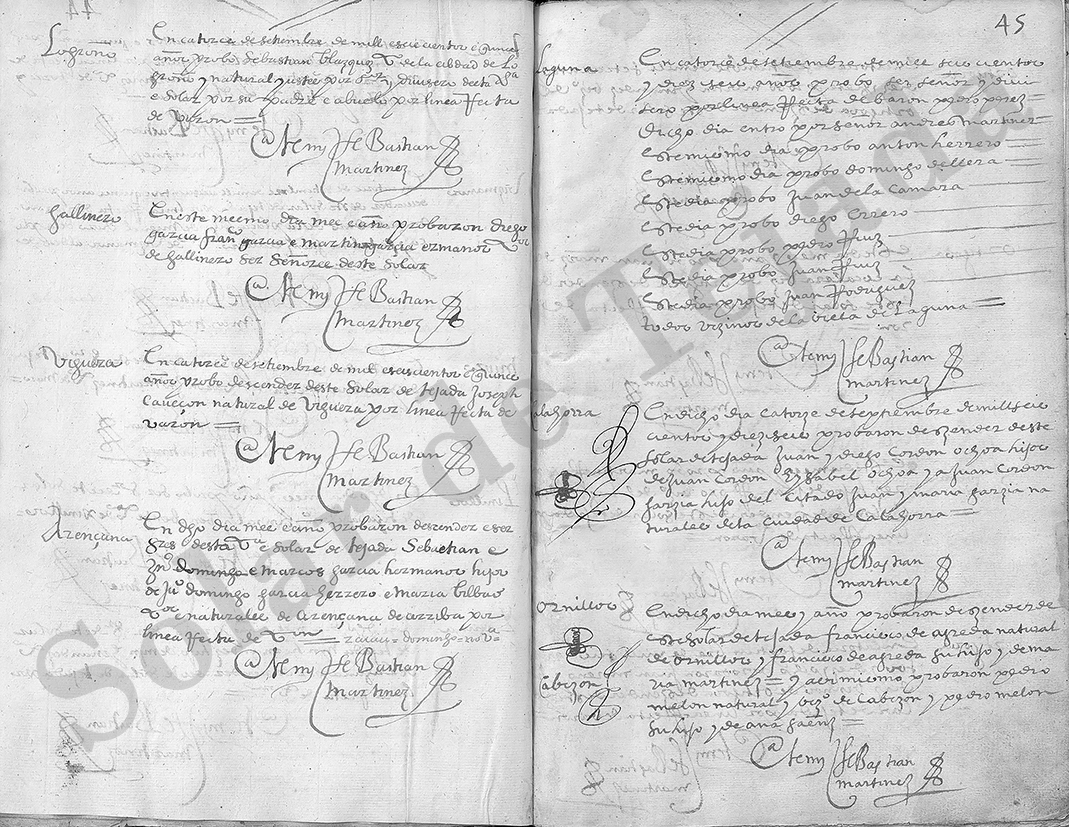 Logroño
En catorce de setiembre de mill e seicientos e quince
años probo sebastian blazquez vº de la ciudad de Lo
groño y natural y ustee por Sor y divisero desta Vª
e solar por su padre e abuelo por linea rrecta
de varon =
Ante mi Sebastian
Martinez
hallinero
En este mesmo dia mes e año probaron Diego
garcia franº garcia e martin garcia ermanos vos
de hallinero ser señores deste solar
Ante mi Sebastian
Martinez
Viguera
En catorce de setiembre de mil e seiscientos e quince
años probo descender deste solar de tejada Joseph
natural de Viguera por linea rrecta de
varon =
Ante mi Sebastian
Martinez
Arençana
En dho dia mes e año probaron descender e ser
sres desta Vª e solar de tejada Sebastian e
Juº domingo e marcos garcia hermanos hijos
de Juº domingo garcia herrero e maria bilbao
vos e naturales de arençana de arriba por
linea rrecta de Von
Ante mi Sebastian
Martinez
45
Laguna
En catorce de setiembre de mill seicientos
y diez seis años probo ser señor y divi
sero por linea rrecta de baron pedro perez
Dicho dia entro por señor andres martinez
Este mismo dia probo anton herrero
Este mismo dia probo domingo de llera
Este dia probo Juan de la Camara
Este dia probo diego errero
Este dia probo pedro Ruiz
Este dia probo Juan Ruiz
Este dia probo Juan Rodriguez
todos vizinos de la de Laguna
Ante mi Sebastian
martinez
Calahorra
En dicho dia catorze de septiembre de mill seis
cientos y diez y seis probaron deszender deste
solar de tejada Juan y diego Cordon ochoa hijos
de Juan Cordon e Ysabel ochoa y a Juan Cordon
garzia hijo del citado Juan y maria garzia na
turales de la ciudad de Calahorra
Ante mi Sebastian
martinez
Ornillos
En dicho dia mes y año probaron deszender de
este solar de tejada francisco de agreda natural
de ornillos y francisco de agreda su hijo y de ma
ria martinez = y asimismo probaron pedro
Cabezon
melon natural y vezº de Cabezon y pedro melon
su hijo y de ana saenz =
Ante mi Sebastian
martinez
Solar de Tejada